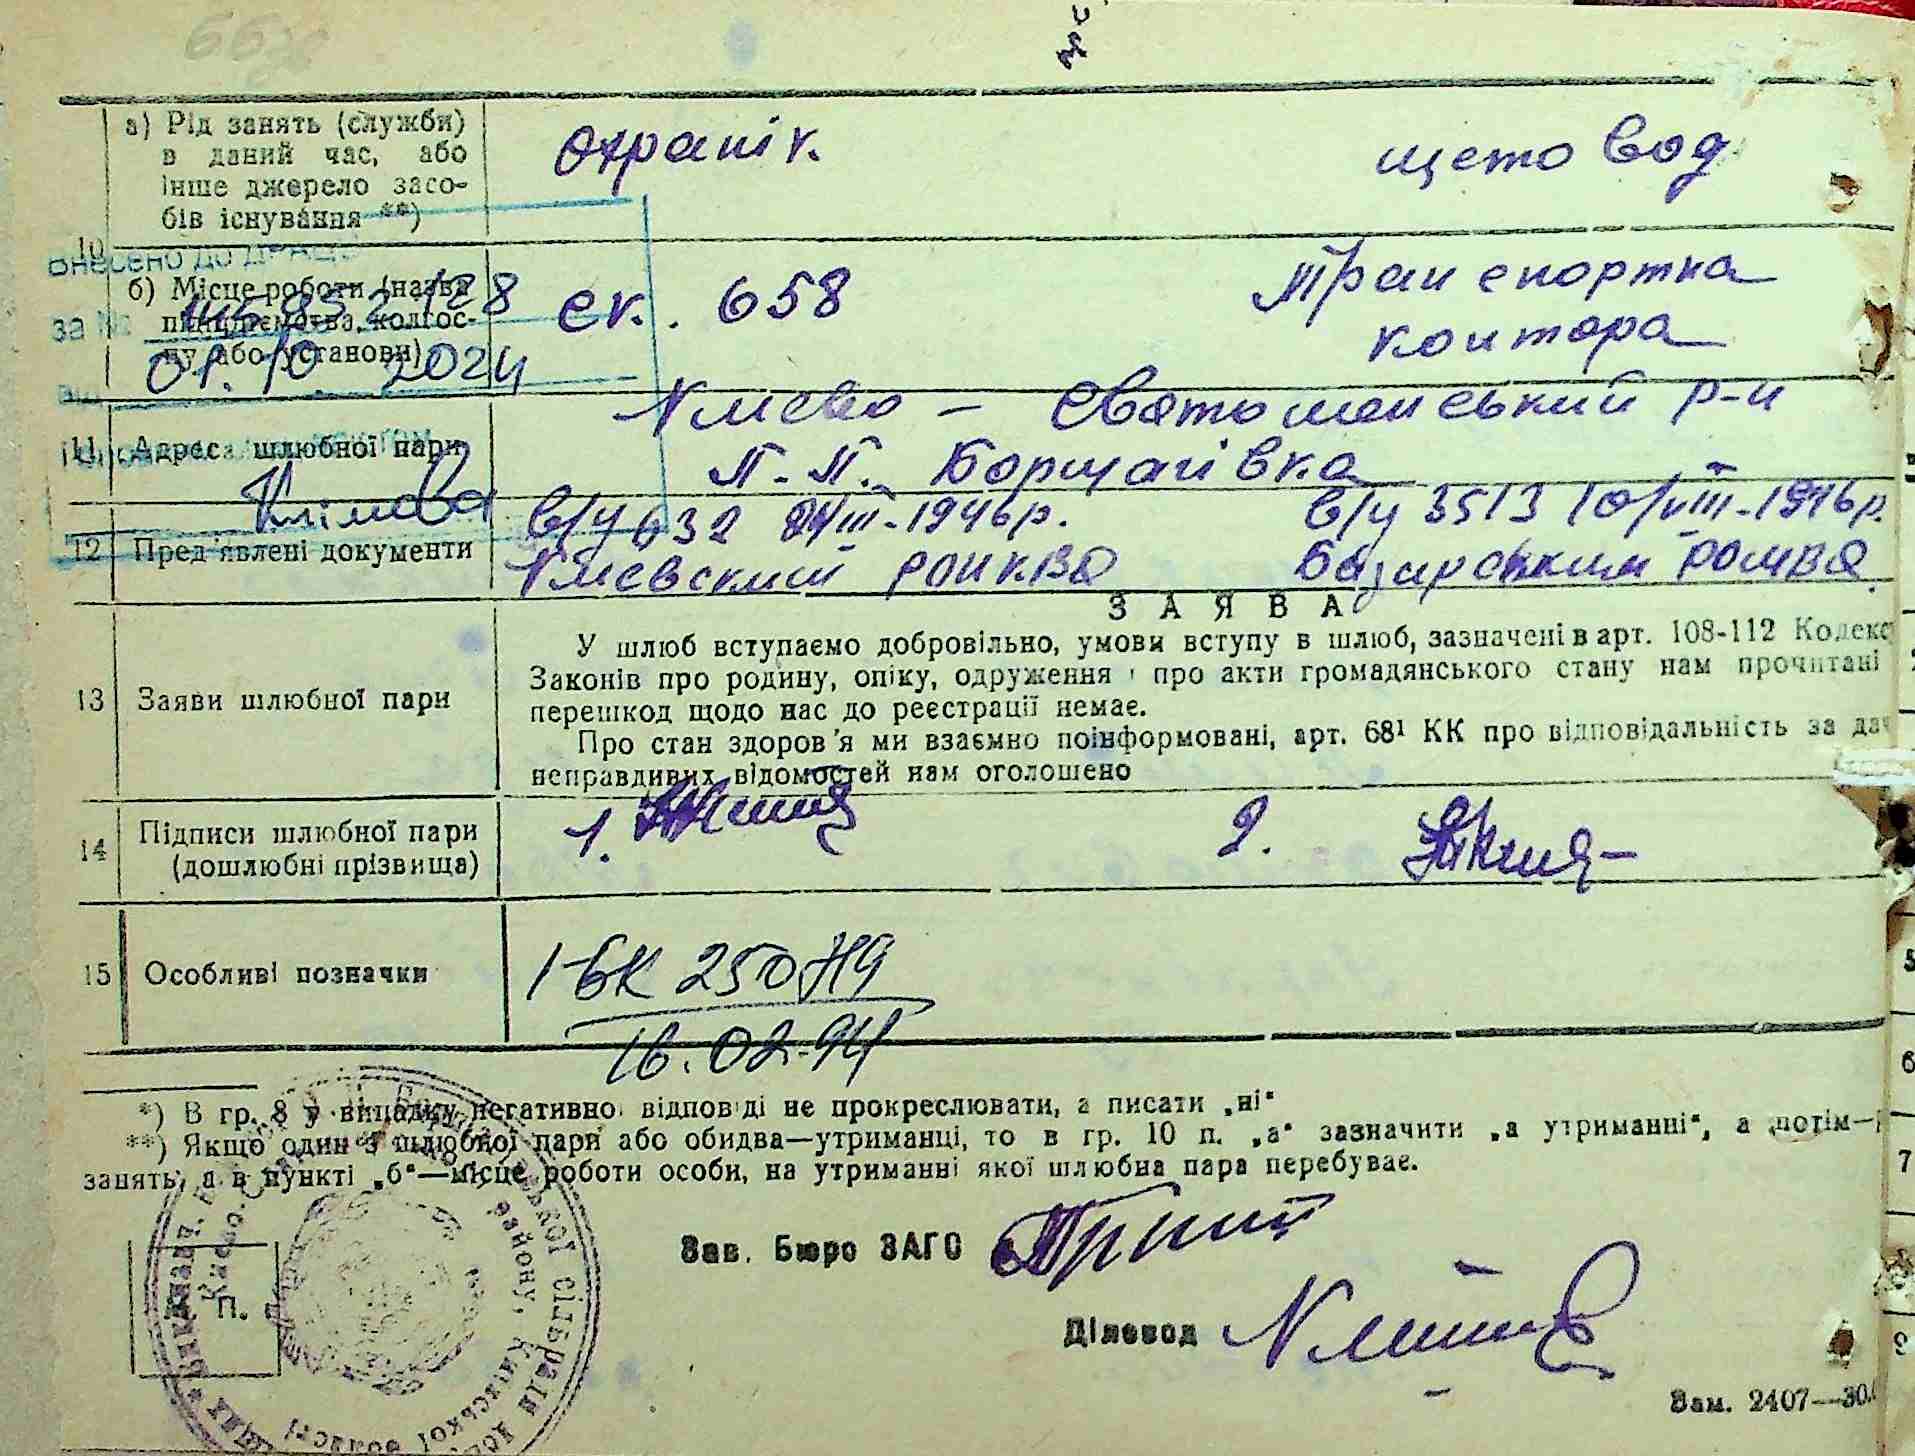 а) Рід занять (служби)
в даний час, або
інше джерело засо-
бів існування **)
охранік.
щетовод
10
Внесено до ДРАЦС
б) Місце роботи (назва
підприємства, колгос-
пу або установи)
за №
01.10 2024
ск. 658
Транспортна
контора
11 Адреса шлюбної пари
Києво - Святошенський р-н
П.-П. Борщагівка
12 Пред'явлені документи
в/у 632 24/III-1946р.
Киевский РОНКВД
в/у 3513 10/VIII-1946р.
Базарським РОМВД
13 Заяви шлюбної пари
ЗАЯВА
У шлюб вступаємо добровільно, умови вступу в шлюб, зазначені в арт. 108-112 Кодекс
Законів про родину, опіку, одруження і про акти громадянського стану нам прочитані
перешкод щодо нас до реєстрації немає.
Про стан здоров'я ми взаємно поінформовані, арт. 68¹ КК про відповідальність за дач
неправдивих відомостей нам оголошено
14 Підписи шлюбної пари
(дошлюбні прізвища)
1.
2.
15 Особливі позначки
I-БК 250719
16.02.94
*) В гр. 8 у випадку негативної відповіді не прокреслювати, а писати „ні“
**) Якщо один з шлюбної пари або обидва—утриманці, то в гр. 10 п. „а“ зазначити „а утриманні“, а потім—
занять, а в пункті „б“—місце роботи особи, на утриманні якої шлюбна пара перебуває.
Зав. Бюро ЗАГС
Діловод
П.
сільради
району, Київської області
Зам. 2407—30.